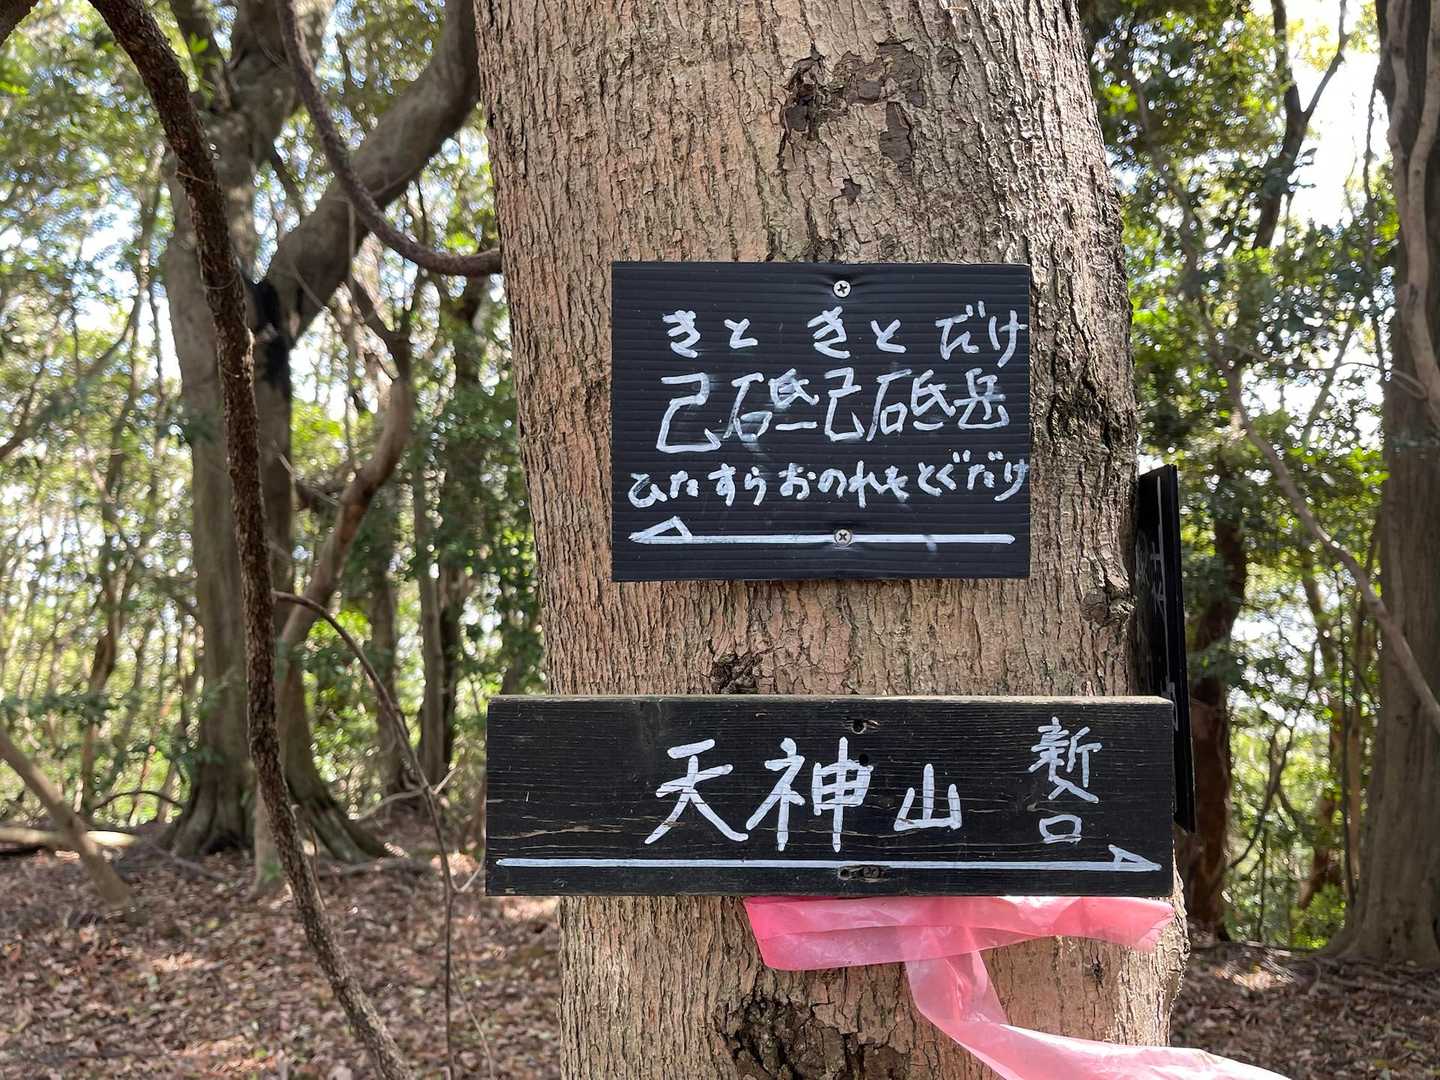 きと きとだけ
己砥己砥岳
ひたすらおのれをとぐだけ
天神山
新口